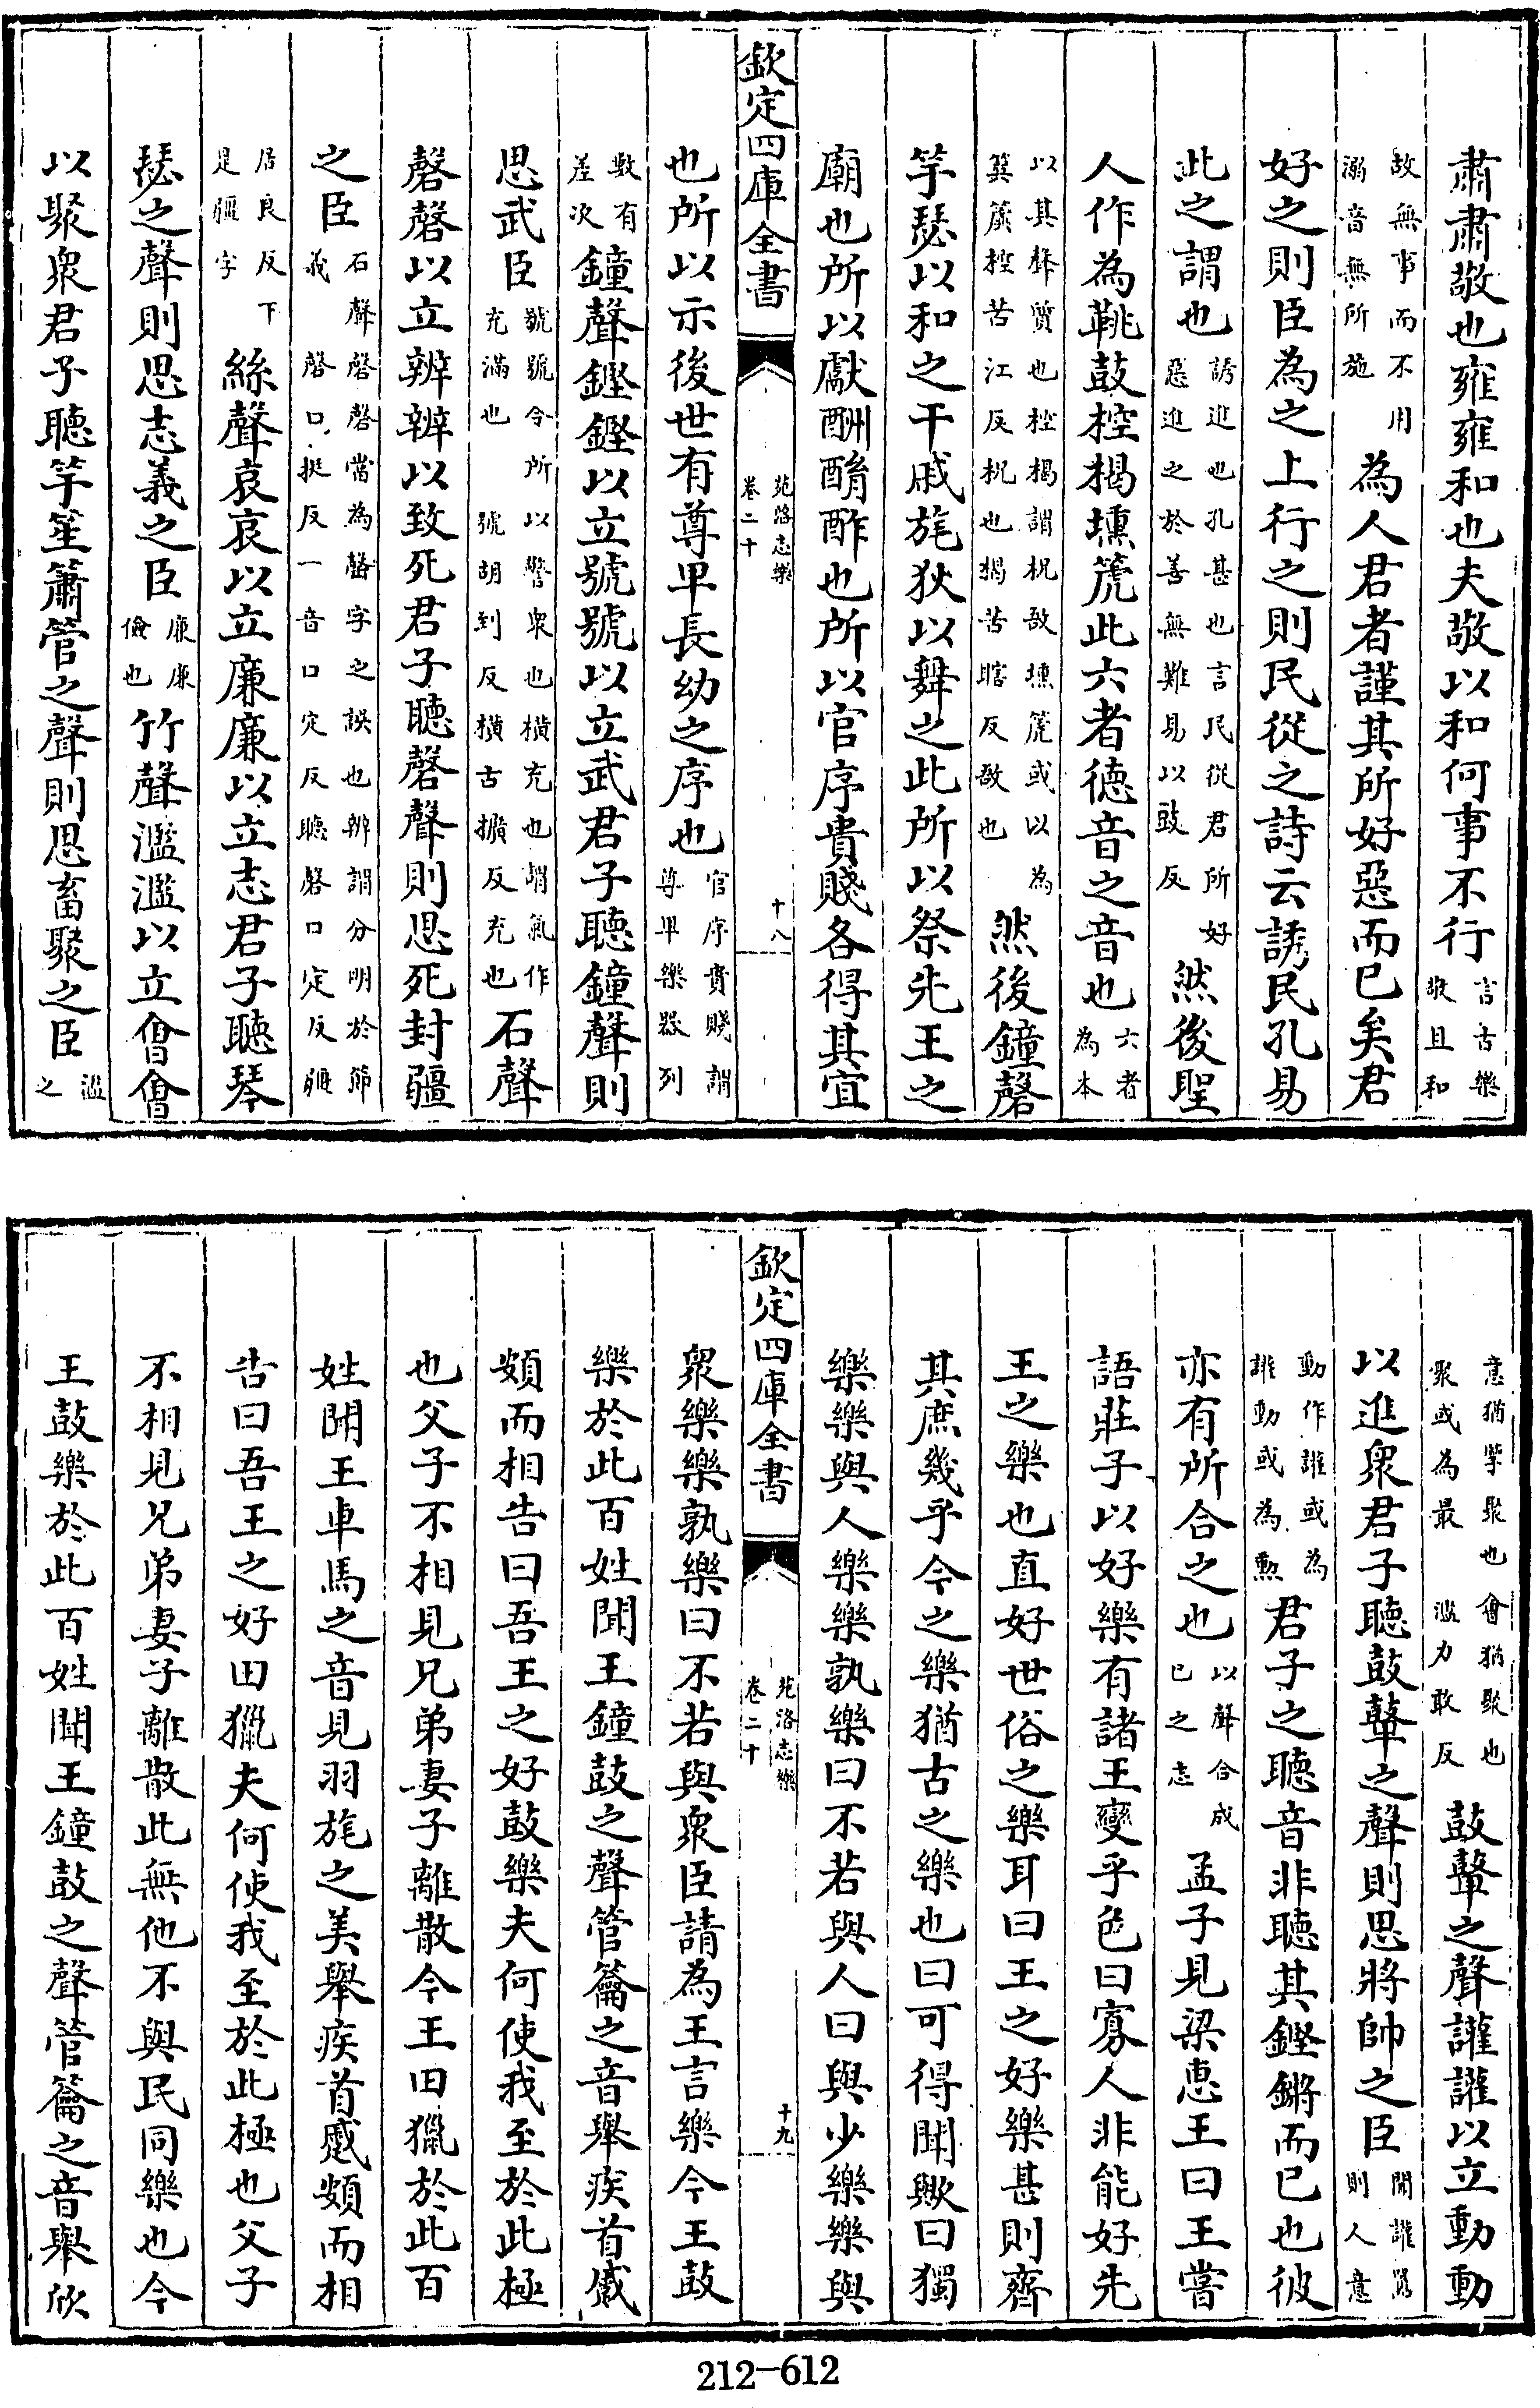 肅肅敬也雍雍和也夫敬以和何事不行言古樂敬且和
故無事而不用溺音無所施為人君者謹其所好惡而已矣君
好之則臣為之上行之則民從之詩云誘民孔易
此之謂也誘進也孔甚也言民從君所好惡進之於善無難易以豉反然後聖
人作為鞉鼓椌楬壎箎此六者德音之音也六者為本
以其聲質也椌楬謂柷敔壎箎或以為簨簴椌苦江反柷也楬苦瞎反敔也然後鐘磬
竽瑟以和之干戚旄狄以舞之此所以祭先王之
廟也所以獻酬酳酢也所以官序貴賤各得其宜
欽定四庫全書 苑洛志樂 卷二十 十八
也所以示後世有尊卑長幼之序也官序貴賤謂尊卑樂器列
數有差次鐘聲鏗鏗以立號號以立武君子聽鐘聲則
思武臣號號令所以警衆也橫充也謂氣作充滿也 號胡到反橫古擴反充也石聲
磬磬以立辨辨以致死君子聽磬聲則思死封疆
之臣石聲磬磬當為罄字之誤也辨謂分明於節義 磬口挺反一音口定反聽磬口定反疆
居良反下是疆字絲聲哀哀以立廉廉以立志君子聽琴
瑟之聲則思志義之臣廉廉儉也竹聲濫濫以立會會
以聚衆君子聽竽笙簫管之聲則思畜聚之臣濫之
意猶擥聚也會猶聚也聚或為最 濫力敢反鼓鼙之聲讙讙以立動動
以進衆君子聽鼓鼙之聲則思將帥之臣聞讙嚻則人意
動作讙或為讙動或為勲君子之聽音非聽其鏗鏘而已也彼
亦有所合之也以聲合成已之志孟子見梁惠王曰王嘗
語莊子以好樂有諸王變乎色曰寡人非能好先
王之樂也直好世俗之樂耳曰王之好樂甚則齊
其庶幾乎今之樂猶古之樂也曰可得聞歟曰獨
樂樂與人樂樂孰樂曰不若與人曰與少樂樂與
欽定四庫全書 苑洛志樂 卷二十 十九
衆樂樂孰樂曰不若與衆臣請為王言樂今王鼓
樂於此百姓聞王鐘鼓之聲管籥之音舉疾首蹙
頞而相告曰吾王之好鼓樂夫何使我至於此極
也父子不相見兄弟妻子離散今王田獵於此百
姓聞王車馬之音見羽旄之美舉疾首蹙頞而相
告曰吾王之好田獵夫何使我至於此極也父子
不相見兄弟妻子離散此無他不與民同樂也今
王鼓樂於此百姓聞王鐘鼓之聲管籥之音舉欣
212-612